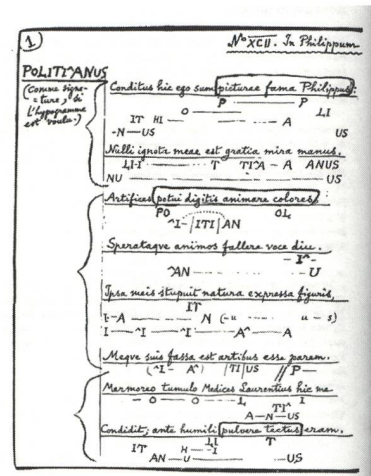 1
N° XCII. In Philippum
POLITI^ANUS
(Comme signa=
=ture, si
l'hypogramme
est voulu.)
Conditus hic ego sum picturae fama Philippus:
P P
O LI
IT HI A
-N-US US
Nulli ignota meae est gratia mira manus.
LI-I T TI^A - A ANUS
NU US
Artifices potui digitis animare colores,
PO OL
^I- /ITI/ AN
Sperataque animos fallere voce diu.
- I^-
^AN U
Ipsa meis stupuit natura expressa figuris,
IT
I-A N (-u u-s)
I ^I ^I A^ A
Meque suis fassa est artibus esse parem.
(^I- A^) /TI/ US // P-
Marmoreo tumulo Medices Laurentius hic me
- O - O L I
TI^
A-N-US
Condidit; ante humili pulvere tectus eram.
IT H LI -I T
AN - U US